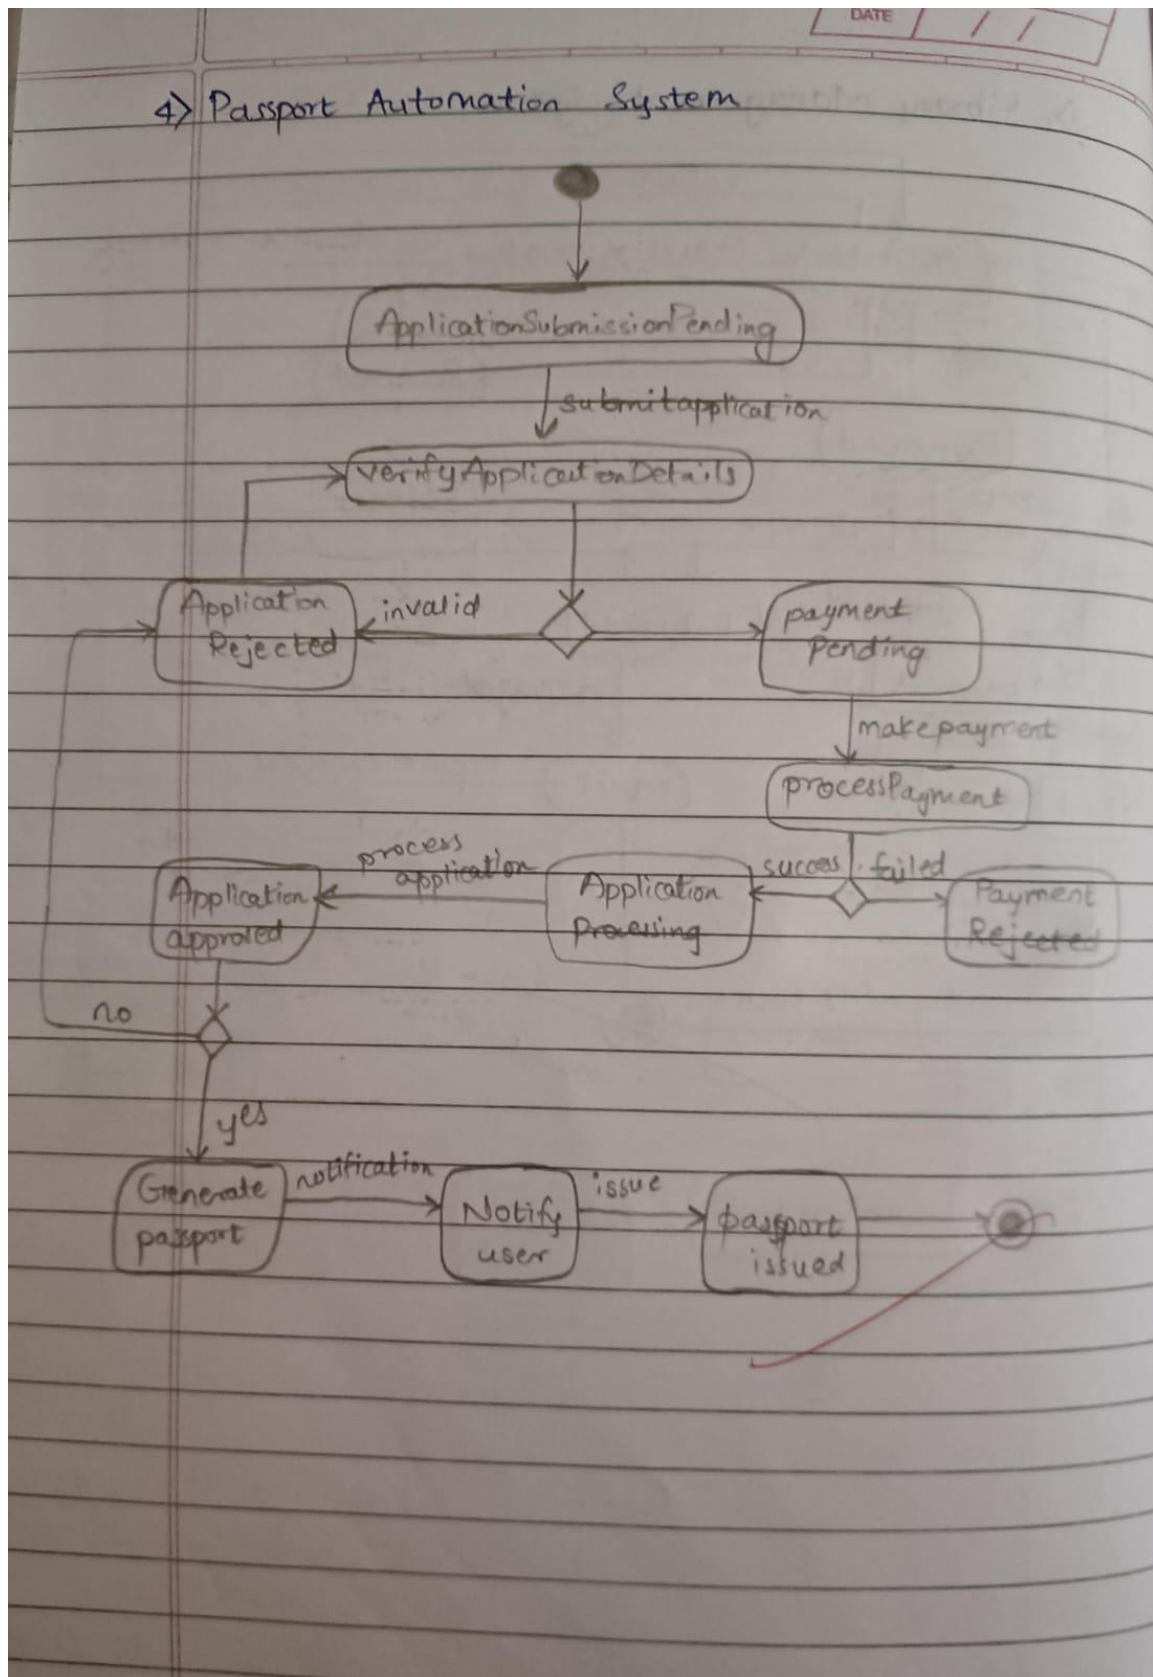 DATE
4) Passport Automation System
ApplicationSubmissionPending
submitapplication
verifyApplicationDetails
Application
Rejected
invalid
payment
Pending
makepayment
processPayment
success
failed
Payment
Rejected
Application
Processing
process
application
Application
approved
no
yes
Generate
passport
notification
Notify
user
issue
passport
issued